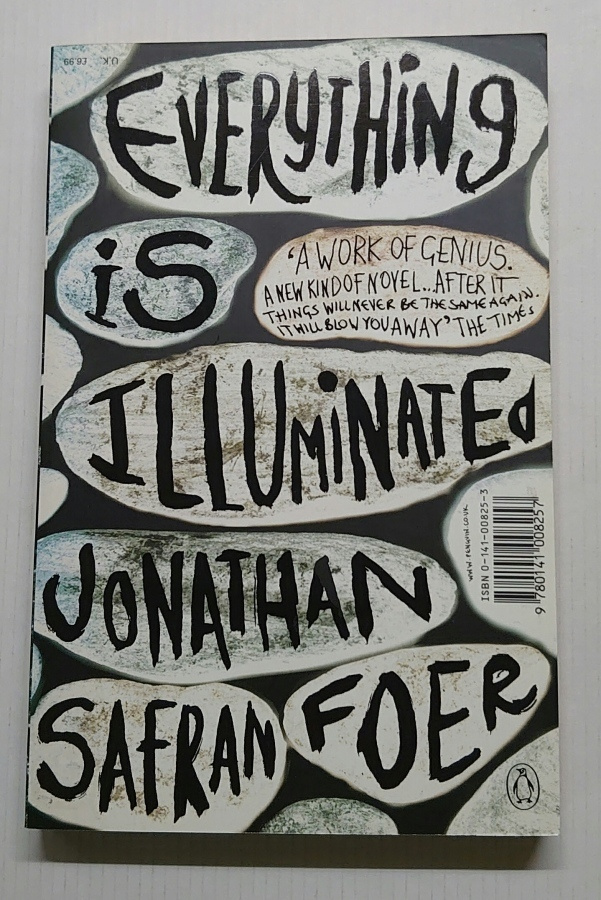 U.K. £6.99
EVERYTHiNg
iS
'A WORK OF GENIUS.
A NEW KIND OF NOVEL...AFTER IT
THINGS WILL NEVER BE THE SAME AGAIN.
IT WILL BLOW YOU AWAY' THE TIMES
ILLUMiNATEd
WWW.PENGUIN.CO.UK
ISBN 0-141-00825-3
9 780141 008257
JONATHAN
SAFRAN
FOER